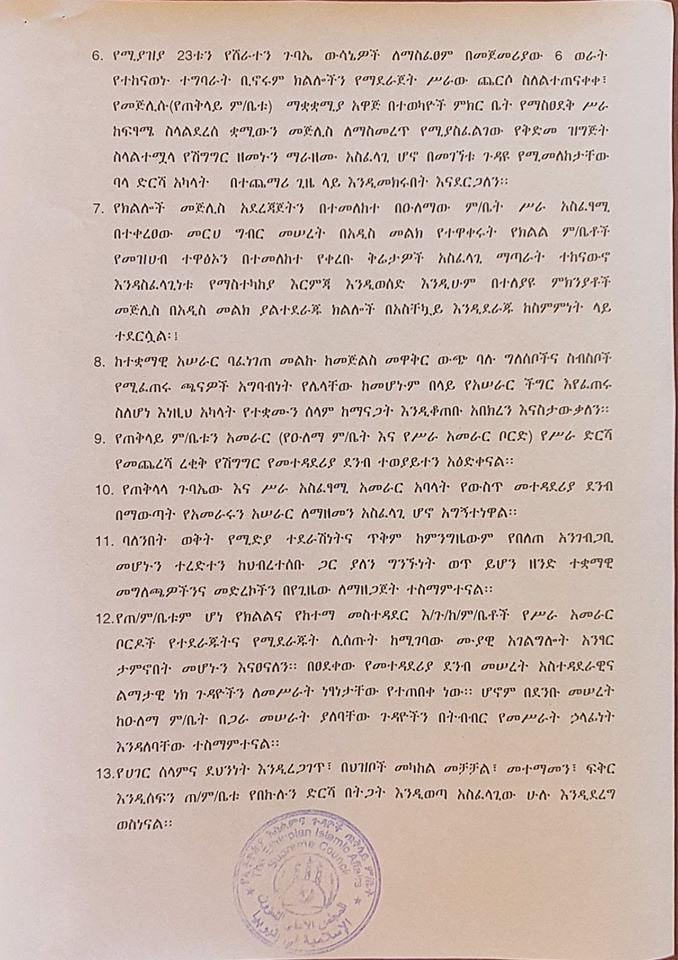 6. የሚያዝያ 23ቱን የሸራተን ጉባኤ ውሳኔዎች ለማስፈፀም በመጀመሪያው 6 ወራት
የተከናወኑ ተግባራት ቢኖሩም ክልሎችን የማደራጀት ሥራው ጨርሶ ስለልተጠናቀቀ፣
የመጅሊሱ(የጠቅላይ ም/ቤቱ) ማቋቋሚያ አዋጅ በተወካዮች ምክር ቤት የማስፀደቅ ሥራ
ከፍፃሜ ስላልደረሰ ቋሚውን መጅሊስ ለማስመረጥ የሚያስፈልገው የቅድመ ዝግጅት
ስላልተሟላ የሽግግር ዘመኑን ማራዘሙ አስፈላጊ ሆኖ በመገኘቱ ጉዳዩ የሚመለከታቸው
ባላ ድርሻ አካላት በተጨማሪ ጊዜ ላይ እንዲመክሩበት እናደርጋለን፡፡
7. የክልሎች መጅሊስ አደረጃጀትን በተመለከተ በዑለማው ም/ቤት ሥራ አስፈፃሚ
በተቀረፀው መርሀ ግብር መሠረት በአዲስ መልክ የተዋቀሩት የክልል ም/ቤቶች
የመዝሀብ ተዋፅኦን በተመለከተ የቀረቡ ቅሬታዎች አስፈላጊ ማጣራት ተከናውኖ
እንዳስፈላጊነቱ የማስተካከያ እርምጃ እንዲወሰድ እንዲሁም በተለያዩ ምክንያቶች
መጅሊስ በአዲስ መልክ ያልተደራጁ ክልሎች በአስቸኳይ እንዲደራጁ ከስምምነት ላይ
ተደርሷል፡፤
8. ከተቋማዊ አሠራር ባፈነገጠ መልኩ ከመጅልስ መዋቅር ውጭ ባሉ ግለሰቦችና ስብስቦች
የሚፈጠሩ ጫናዎች አግባብነት የሌላቸው ከመሆኑም በላይ የአሠራር ችግር እየፈጠሩ
ስለሆነ እነዚህ አካላት የተቋሙን ሰላም ከማናጋት እንዲቆጠቡ አበክረን እናስታውቃለን፡፡
9. የጠቅላይ ም/ቤቱን አመራር (የዑለማ ም/ቤት እና የሥራ አመራር ቦርድ) የሥራ ድርሻ
የመጨረሻ ረቂቅ የሽግግር የመተዳደሪያ ደንብ ተወያይተን አፅድቀናል፡፡
10. የጠቅላላ ጉባኤው እና ሥራ አስፈፃሚ አመራር አባላት የውስጥ መተዳደሪያ ደንብ
በማውጣት የአመራሩን አሠራር ለማዘመን አስፈላጊ ሆኖ አግኝተነዋል፡፡
11. ባለንበት ወቅት የሚድያ ተደራሽነትና ጥቅም ከምንግዜውም የበለጠ አንገብጋቢ
መሆኑን ተረድተን ከህብረተሰቡ ጋር ያለን ግንኙነት ወጥ ይሆን ዘንድ ተቋማዊ
መግለጫዎችንና መድረኮችን በየጊዜው ለማዘጋጀት ተስማምተናል፡፡
12.የጠ/ም/ቤቱም ሆነ የክልልና የከተማ መስተዳደር እ/ጉ/ከ/ም/ቤቶች የሥራ አመራር
ቦርዶች የተደራጁትና የሚደራጁት ሊሰጡት ከሚገባው ሙያዊ አገልግሎት አንፃር
ታምኖበት መሆኑን እናፀናለን፡፡ በፀደቀው የመተዳደሪያ ደንብ መሠረት አስተዳደራዊና
ልማታዊ ነክ ጉዳዮችን ለመሥራት ነፃነታቸው የተጠበቀ ነው፡፡ ሆኖም በደንቡ መሠረት
ከዑለማ ም/ቤት በጋራ መሠራት ያለባቸው ጉዳዮችን በትብብር የመሥራት ኃላፊነት
እንዳለባቸው ተስማምተናል፡፡
13.የሀገር ሰላምና ደህንነት እንዲረጋገጥ፣ በህዝቦች መካከል መቻቻል፣ መተማመን፣ ፍቅር
እንዲሰፍን ጠ/ም/ቤቱ የበኩሉን ድርሻ በትጋት እንዲወጣ አስፈላጊው ሁሉ እንዲደረግ
ወስነናል፡፡
የኢትዮጵያ እስልምና ጉዳዮች ጠቅላይ ም/ቤት
The Ethiopian Islamic Affairs
Supreme Council